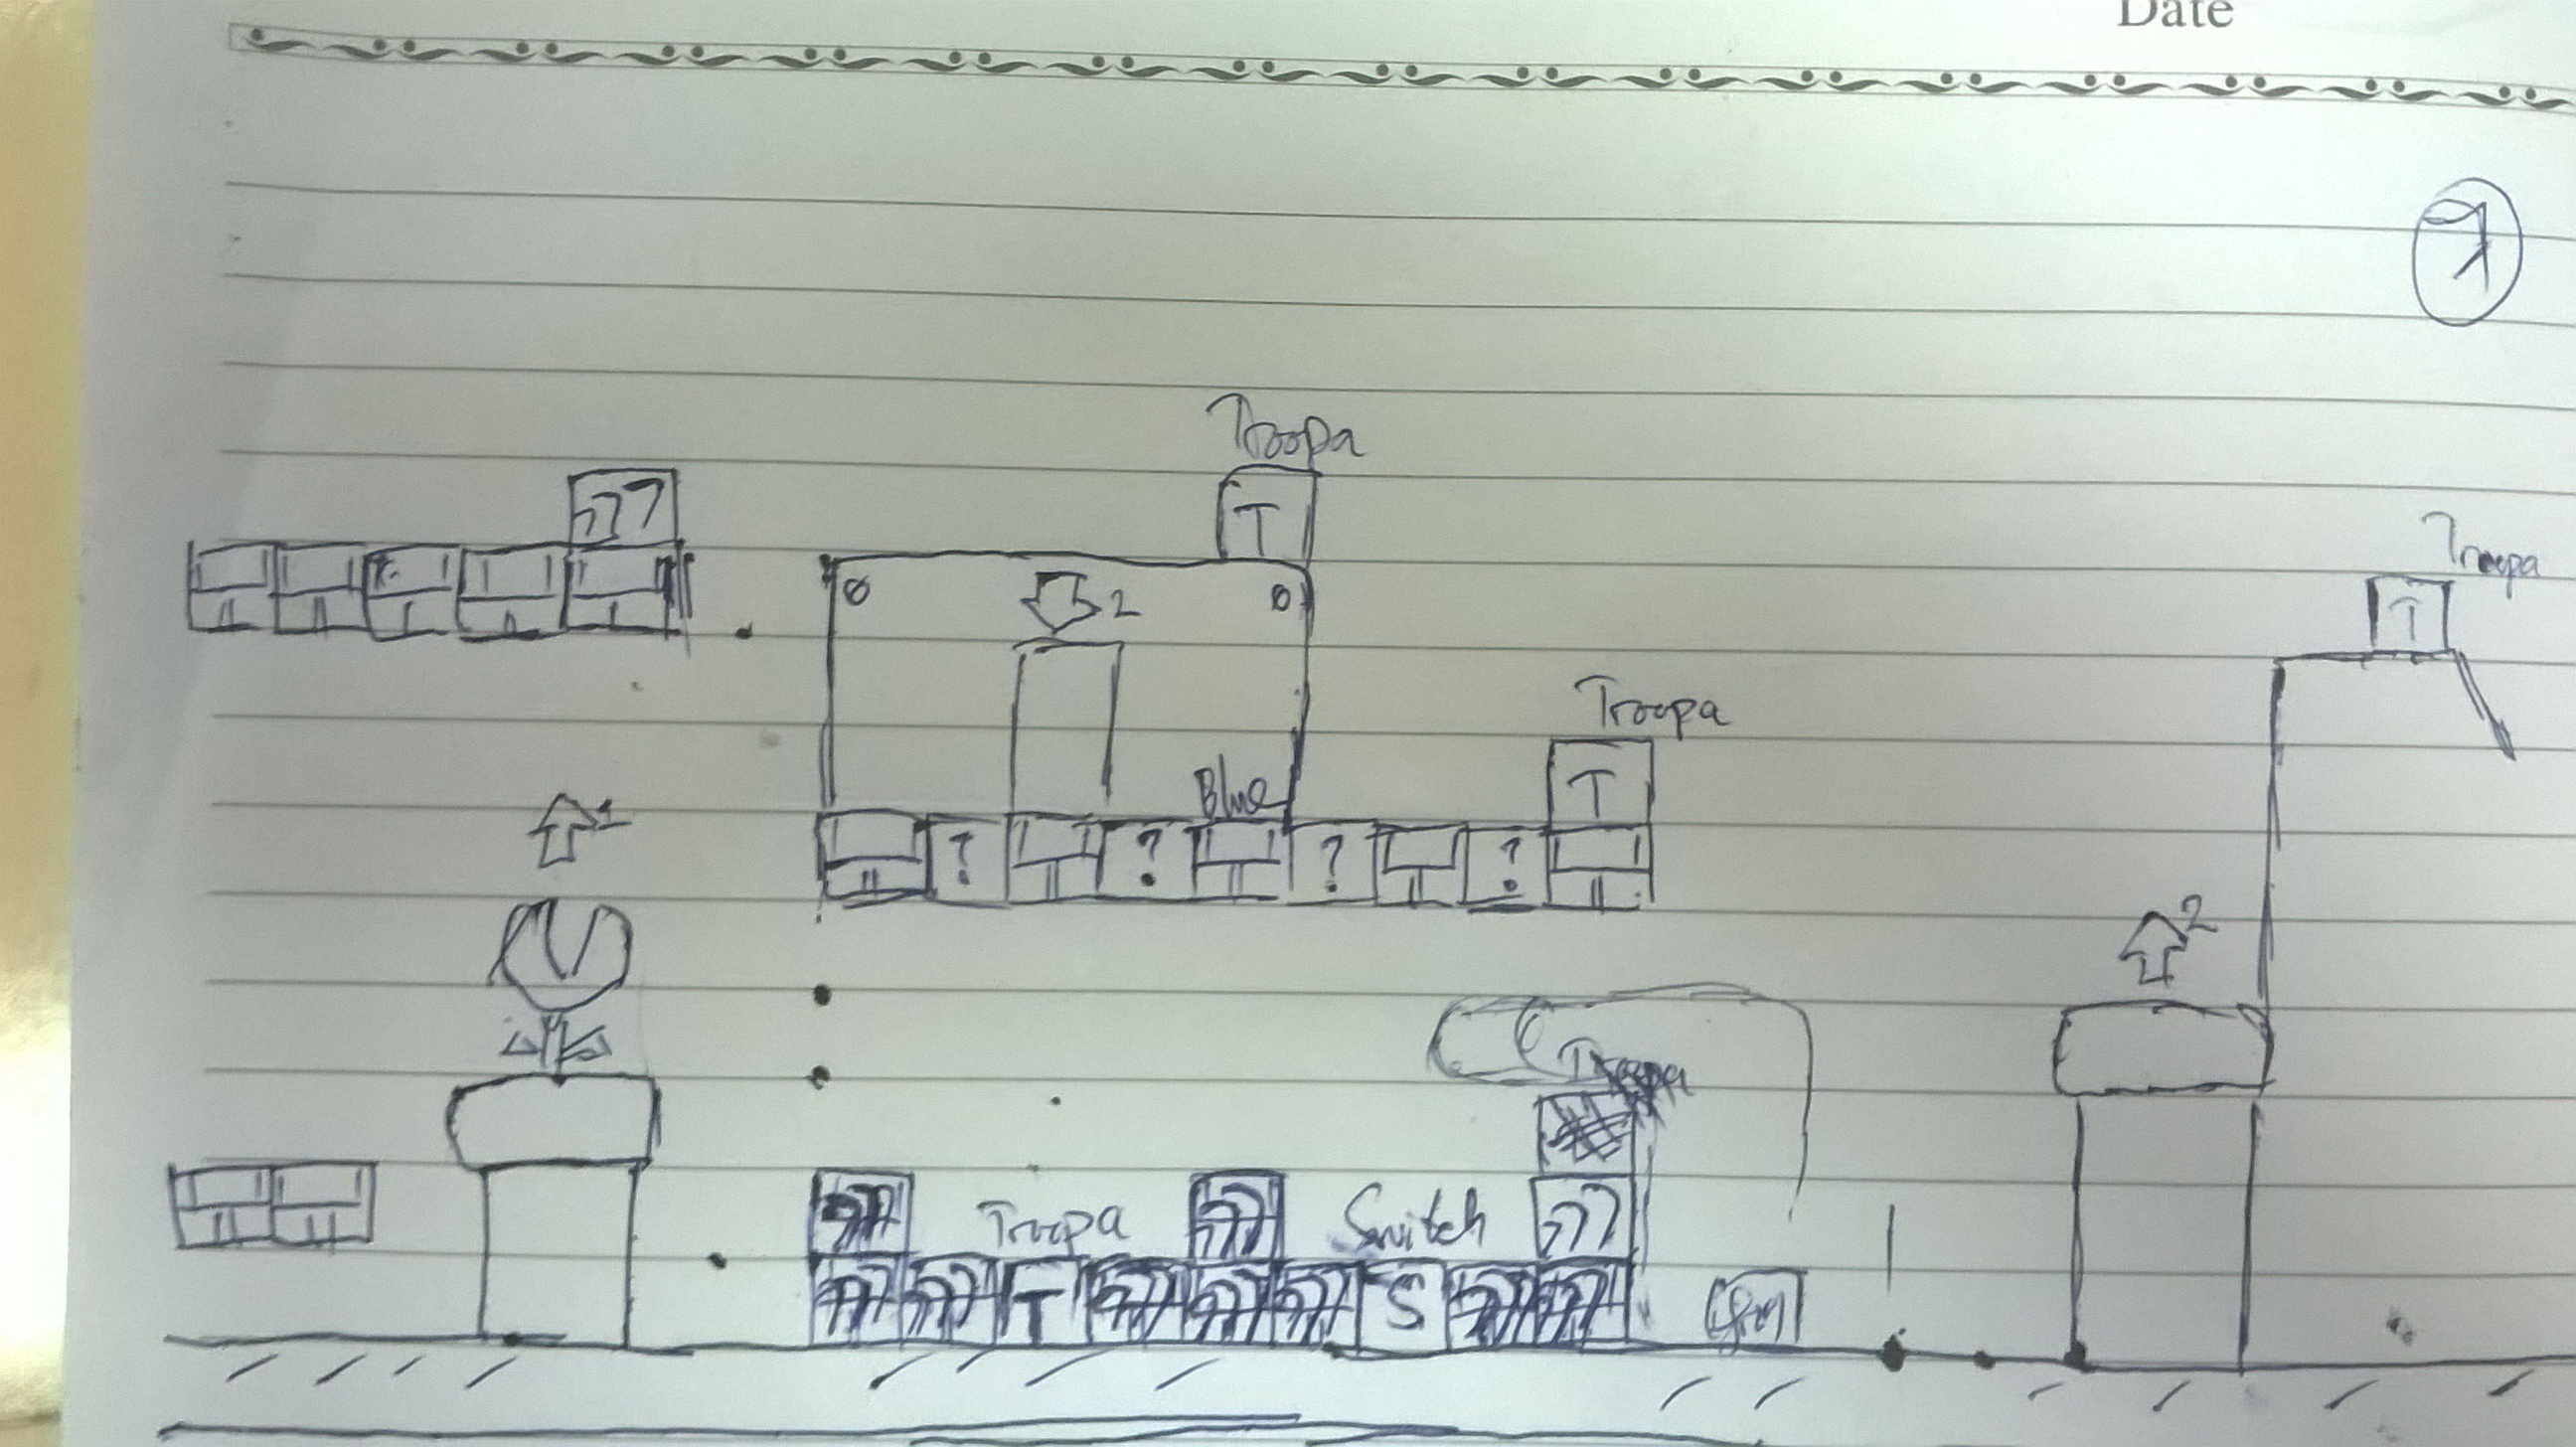 Date
7
Troopa
T
Troopa
T
2
Troopa
T
Blue
1
? ? ? ?
2
Troopa
Troopa
Switch
T
S